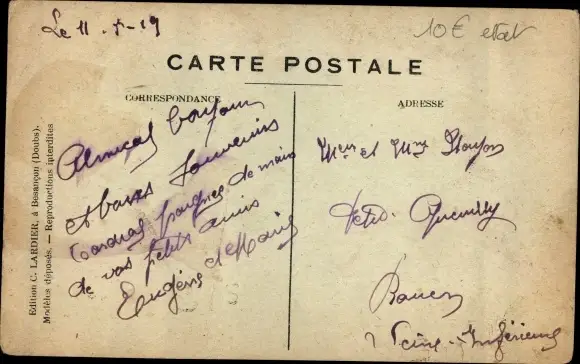 Le 11 - 7 - 19
10€ etat
CARTE POSTALE
CORRESPONDANCE
ADRESSE
Edition C. LARDIER, à Besançon (Doubs).
Modèles déposés. — Reproductions interdites
Amical bonjour
et bons souvenirs
Cordial poignée de main
de vos petits amis
Eugène et Marie
et Mme
Petit Quevilly
Rouen
Seine-Inférieure